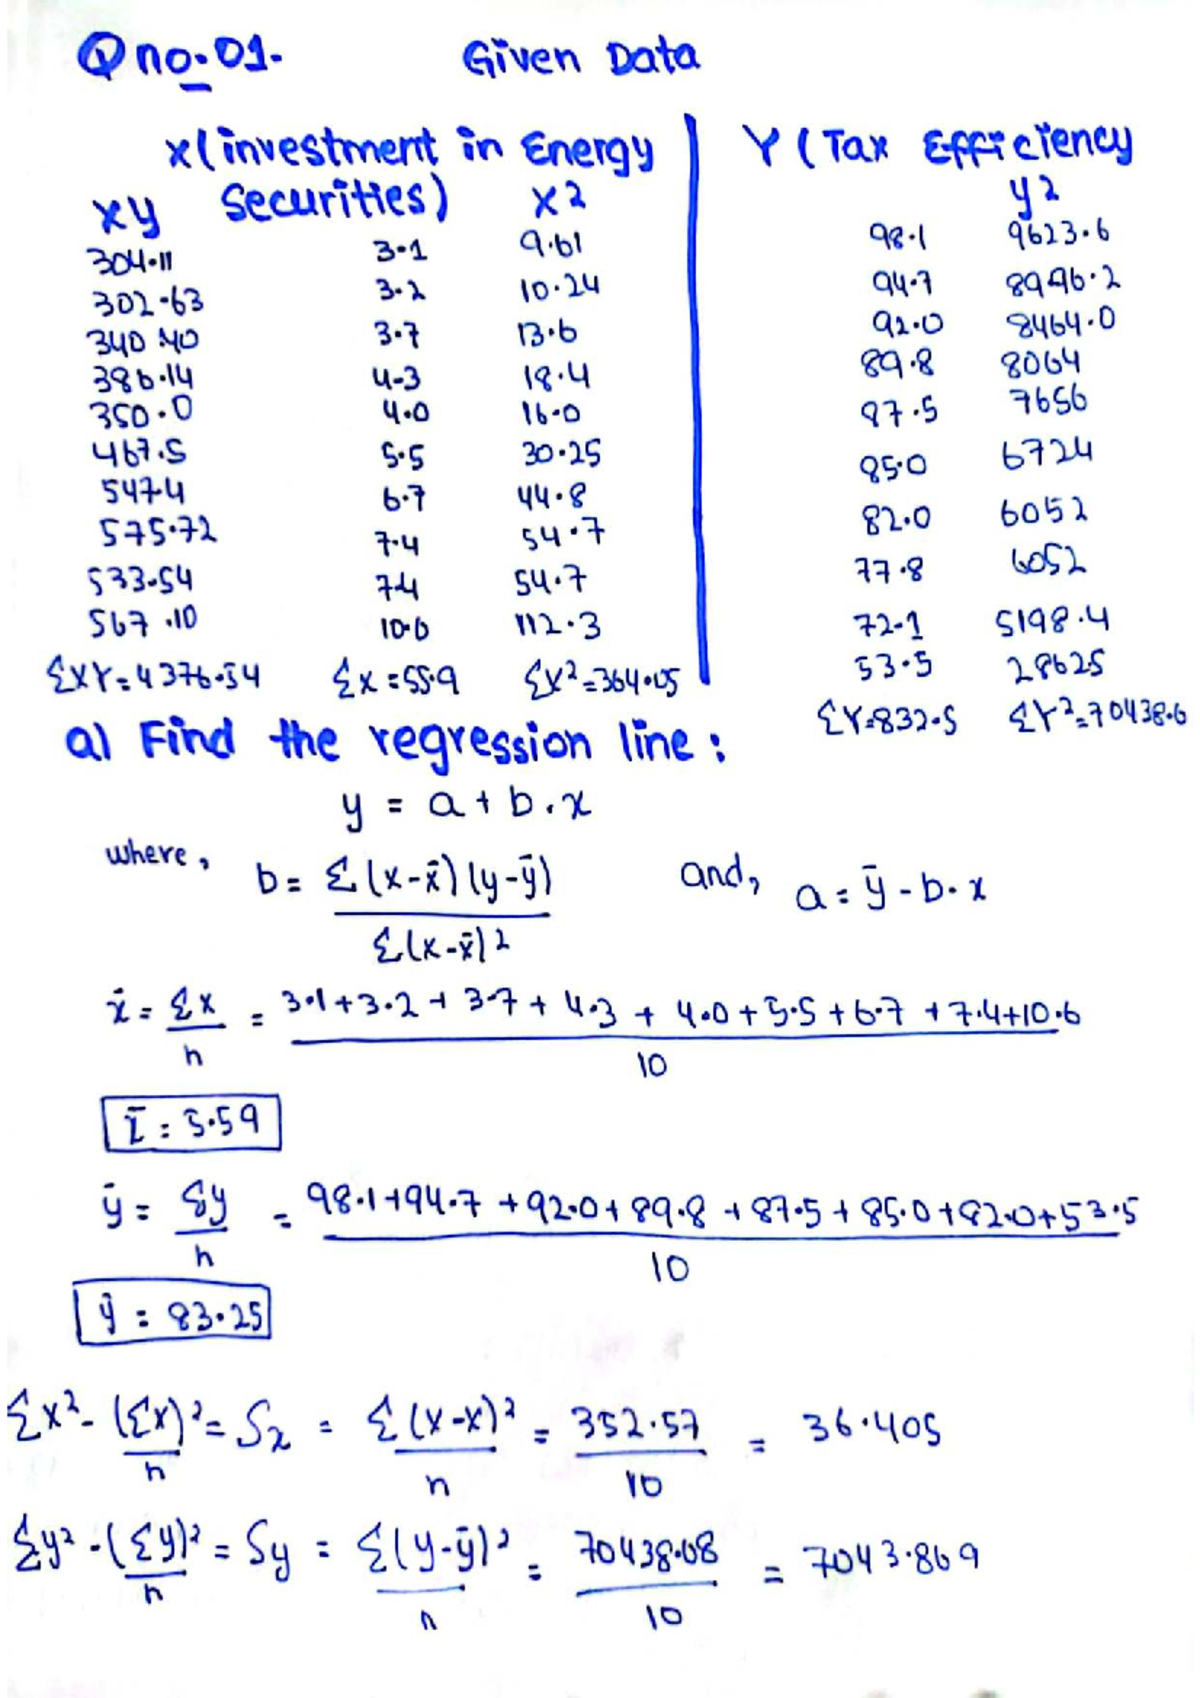 Q no. 01. Given Data
x(investment in Energy Securities) Y (Tax Efficiency
xy x2 y2
304.11 3.1 9.61 98.1 9623.6
302.63 3.2 10.24 94.7 8996.2
340.40 3.7 13.6 92.0 8464.0
386.14 4.3 18.4 89.8 8064
350.0 4.0 16.0 87.5 7656
467.5 5.5 30.25 85.0 6724
547.4 6.7 44.8 82.0 6052
575.72 7.4 54.7 77.8 6052
533.54 7.4 54.7 72.1 5198.4
567.10 10.6 112.3 53.5 28625
ΣXY=4376.54 Σx=55.9 Σx²=364.05 ΣY=832.5 ΣY²=70438.6
a) Find the regression line:
y = a + b.x
where, b = Σ(x-x̄)(y-ȳ) / Σ(x-x̄)2 and, a = ȳ - b. x
x̄ = Σx / n = 3.1+3.2+3.7+4.3+4.0+5.5+6.7+7.4+10.6 / 10
x̄ = 5.59
ȳ = Σy / n = 98.1+94.7+92.0+89.8+87.5+85.0+82.0+53.5 / 10
ȳ = 83.25
Σx² - (Σx)² / n = Sx = Σ(x-x)² / n = 352.57 / 10 = 36.405
Σy² - (Σy)² / n = Sy = Σ(y-ȳ)² / n = 70438.68 / 10 = 7043.869